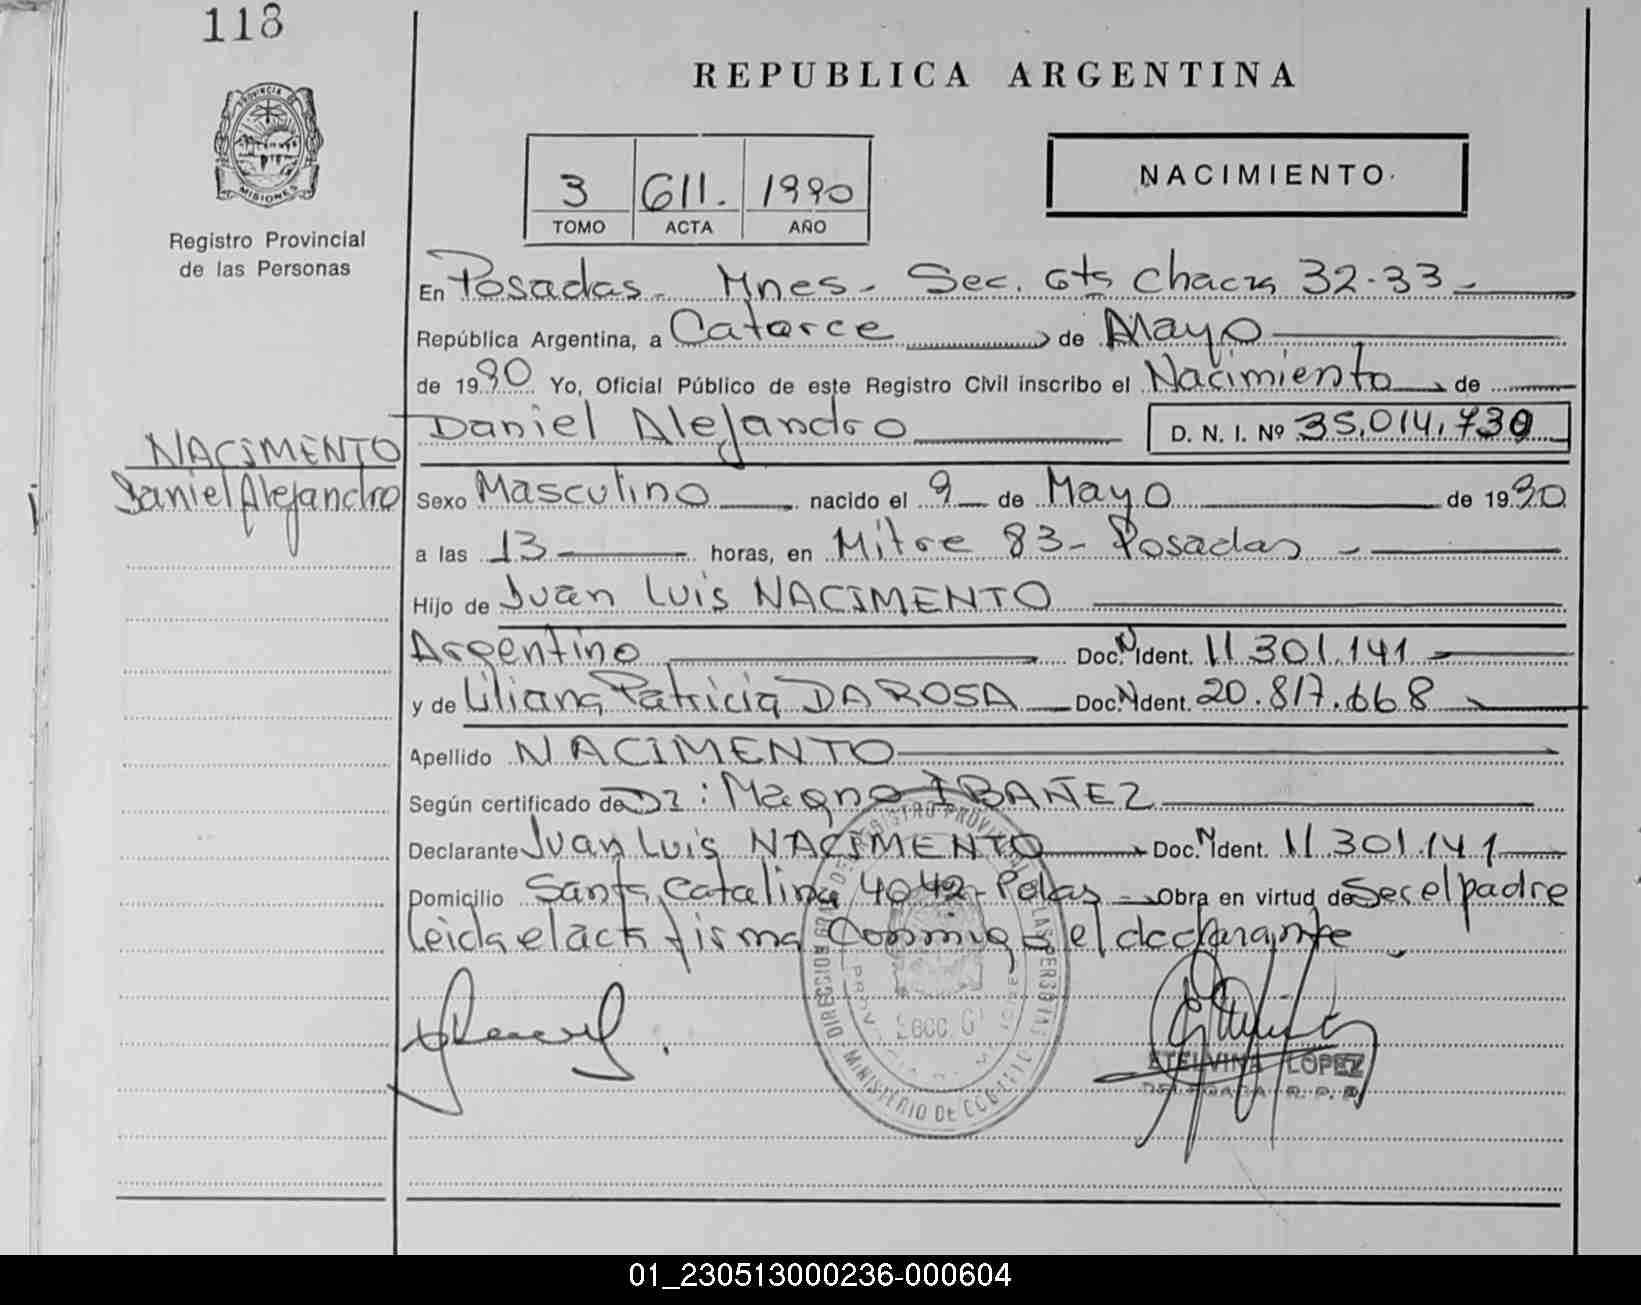 118
REPUBLICA ARGENTINA
PROVINCIA DE MISIONES
Registro Provincial
de las Personas
3 611. 1990
TOMO ACTA AÑO
NACIMIENTO
En Posadas - Mnes - Sec. 6ta Chacra 32-33 -
República Argentina, a Catorce de Mayo
de 1990 Yo, Oficial Público de este Registro Civil inscribo el Nacimiento de
Daniel Alejandro D. N. I. Nº 35.014.730
NACIMENTO
Daniel Alejandro
Sexo Masculino nacido el 9 de Mayo de 1990
a las 13 horas, en Mitre 83 - Posadas -
Hijo de Juan Luis NACIMENTO
Argentino Doc. N Ident. 11.301.141
y de Liliana Patricia DA ROSA Doc. N Ident. 20.817.668
Apellido NACIMENTO
Según certificado de Dr: Magno IBAÑEZ
Declarante Juan Luis NACIMENTO Doc. N Ident. 11.301.141
Domicilio Santa Catalina 4042 - Pdas - Obra en virtud de Ser el padre
Leida el acta firma Conmigo el declarante
DIRECCION GRAL DEL REGISTRO PROVINCIAL DE LAS PERSONAS
MINISTERIO DE GOBIERNO
ETELVINA LOPEZ
DELEGADA R. P. P.
01_230513000236-000604